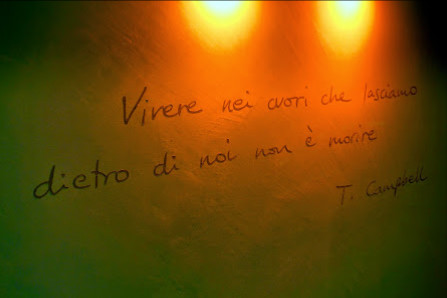 Vivere nei cuori che lasciamo
dietro di noi non è morire
T. Campbell